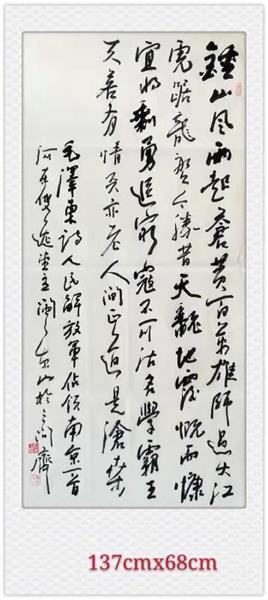 鍾山风雨起蒼黄百万雄師过大江
虎踞龍盤今勝昔天翻地覆慨而慷
宜将剩勇追穷寇不可沽名學霸王
天若有情天亦老人间正道是滄桑
毛澤東詩人民解放軍佔領南京一首
堂主山於齋
137cmx68cm